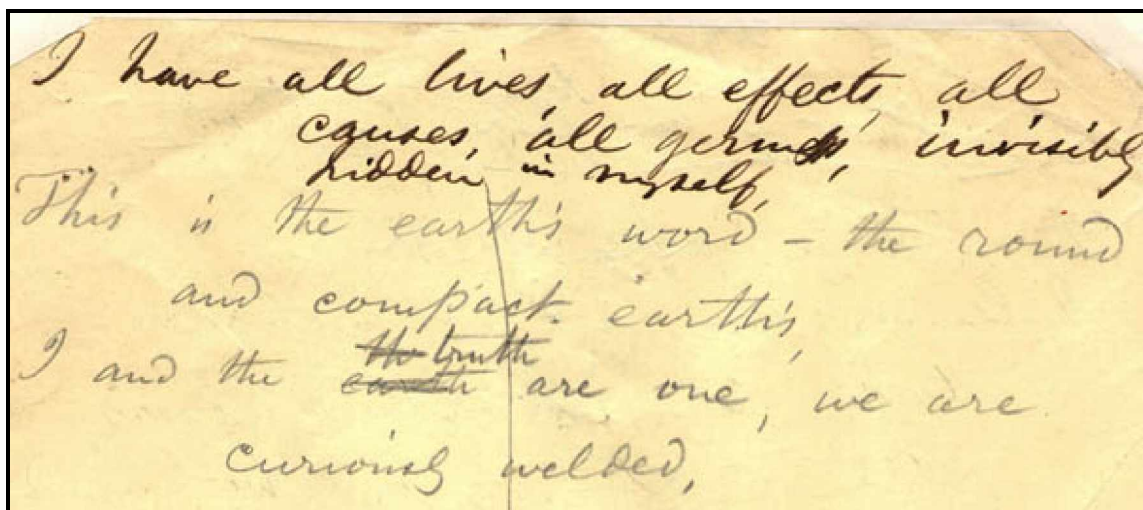 I have all lives, all effects, all
causes, all germs, invisibly
hidden in myself,
This is the earth's word – the round
and compact earth's,
the truth
I and the earth are one, we are
curiously welded,